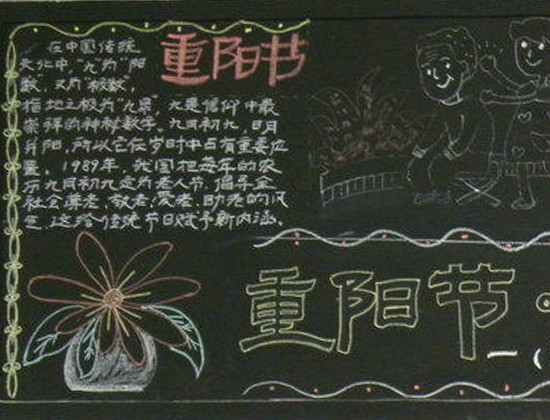 重阳节
在中国传统
文化中，"九"为"阳
数"，又为"极数"，
指地之极为"九泉"，九是信仰中最
崇祥的神秘数字。九月初九，日月
并阳，所以它在岁时中占有重要位
置。1989年，我国把每年的农
历九月初九定为老人节，倡导全
社会尊老、敬老、爱老、助老的风
气，这给传统节日赋予新内涵。
重阳节